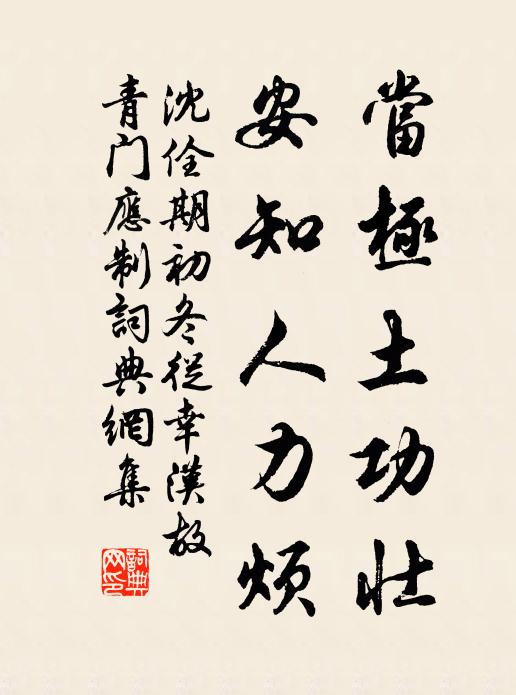 當極土功壯
安知人力煩
沈佺期初冬從幸漢故
青门應制詞典網集
詞典網印